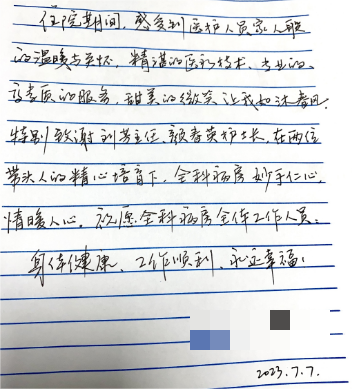 住院期间,感受到医护人员家人般
的温暖与关怀,精湛的医疗技术、专业的、
高素质的服务,甜美的微笑让我如沐春风.
特别致谢刘芳主任、颜春英护士长,在两位
带头人的精心培育下,全科病房妙手仁心,
情暖人心。祝愿全科病房全体工作人员.
身体健康、工作顺利、永远幸福!
2023.7.7.